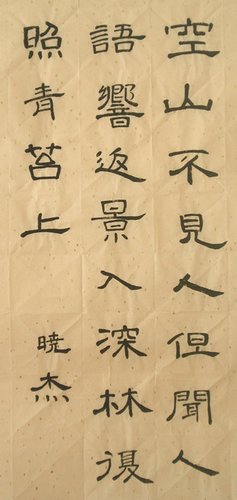 空山不見人但聞人
語響返景入深林復
照青苔上
暁杰